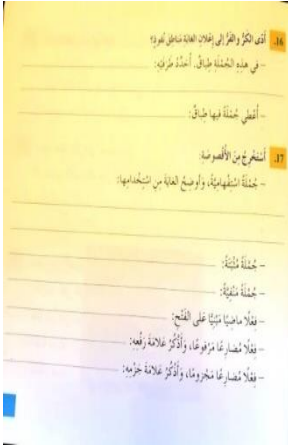 16. أَدَّى الكَرُّ والفَرُّ إِلى إِعْلانِ الغابَةِ مَناطِقَ نُفوذٍ؟
– في هذِهِ الجُمْلَةِ طِباقٌ. أُحَدِّدُ طَرَفَيْهِ:
– أُعْطي جُمْلَةً فيها طِباقٌ:
17. أَسْتَخْرِجُ مِنَ الأُقْصوصَةِ:
– جُمْلَةً اسْتِفْهامِيَّةً، وَأُوضِحُ الغايَةَ مِنِ اسْتِخْدامِها:
– جُمْلَةً مُثْبَتَةً:
– جُمْلَةً مَنْفِيَّةً:
– فِعْلًا ماضِيًا مَبْنِيًّا عَلى الفَتْحِ:
– فِعْلًا مُضارِعًا مَرْفوعًا، وَأَذْكُرُ عَلامَةَ رَفْعِهِ:
– فِعْلًا مُضارِعًا مَجْزومًا، وَأَذْكُرُ عَلامَةَ جَزْمِهِ: